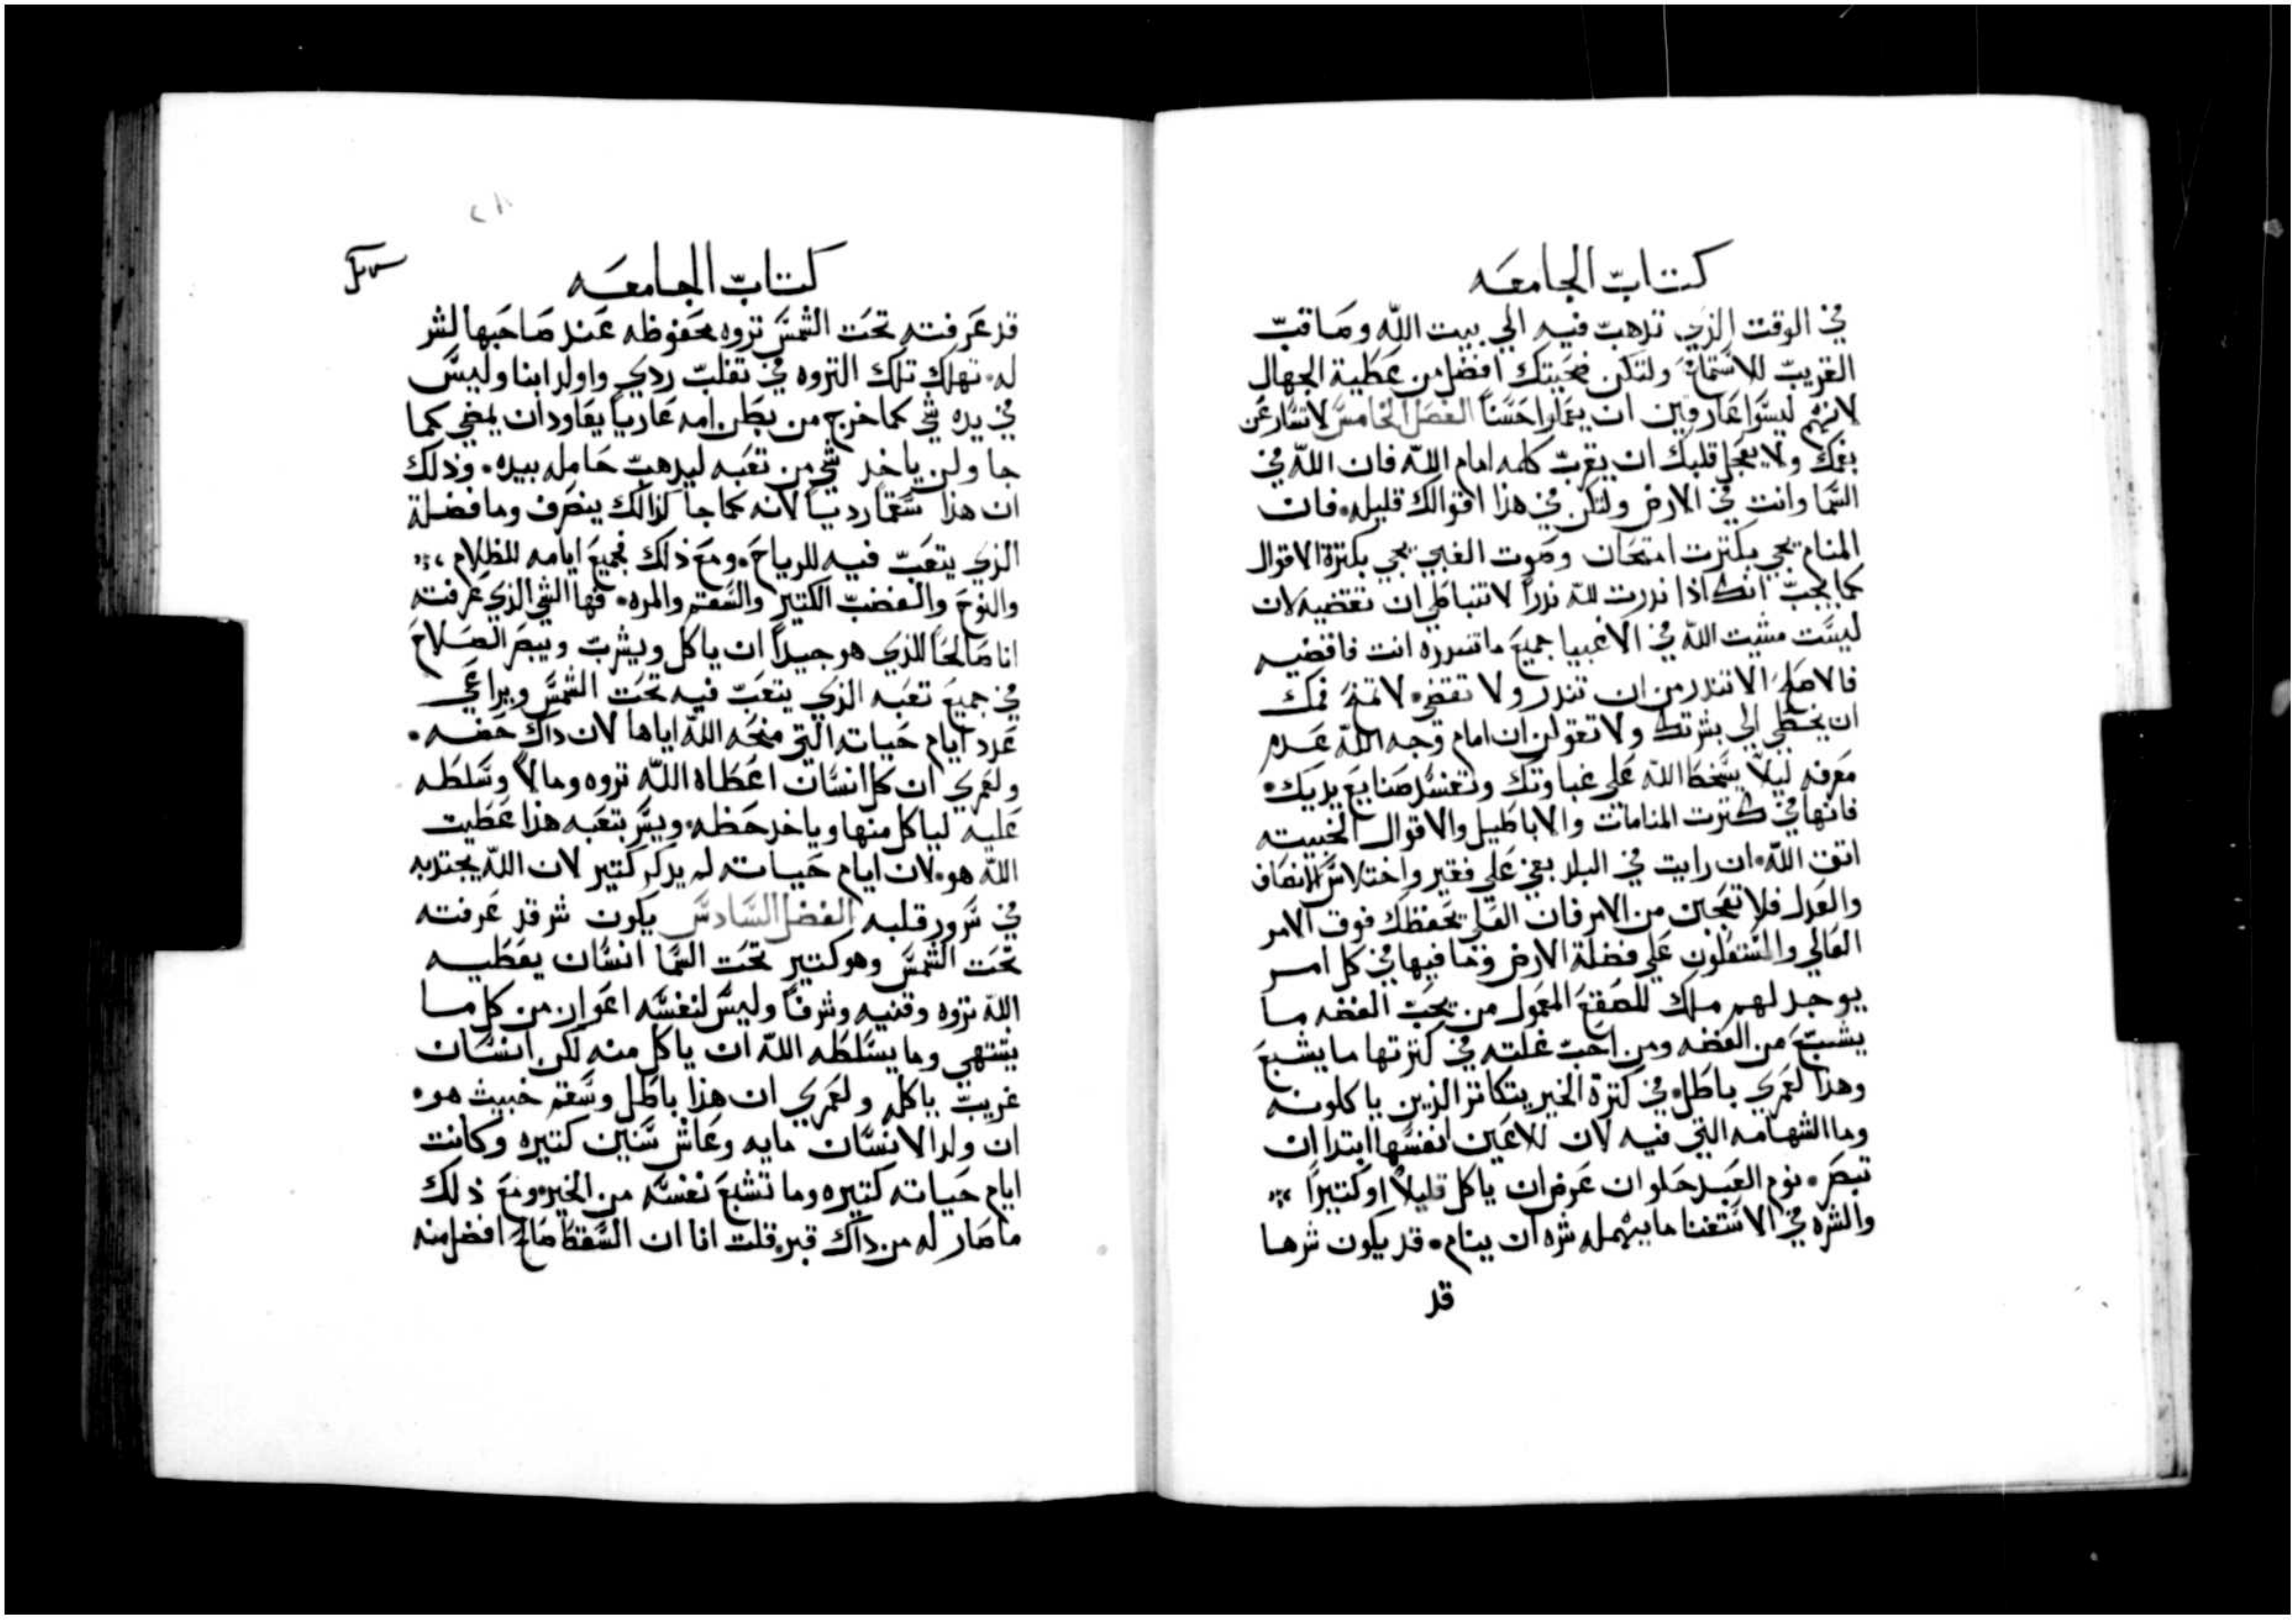 كتاب الجامعه
في الوقت الذي تذهب فيه الي بيت الله وصاقب
القريب للاستماع ولتكن ضحيتك افضل من عطية الجهال
لانهم ليسوا عارفين ان يعملوا حسنا الفصل الخامس لا تسارعن
بفمك ولا يعجل قلبك ان يقرب كلمه امام الله فان الله في
السما وانت في الارض ولتكن في هذا اقوالك قليله. فان
المنام يجي بكترت امتحان وصوت الغبي يجي بكترة الاقوال
كما يجب انك اذا ندرت لله ندرا لا تتباطي ان تقضيه لان
ليست مشيت الله في الاغبيا جميع ما تندره انت فاقضيه
فالاصلح الا تندر من ان تندر ولا تقضي. لا تمنع فمك
ان يخطي الي بشرتك ولا تقولن ان امام وجه الله عدم
معرفه ليلا يسخط الله علي غباوتك وتفسد صنايع يديك.
فانها في كترت المنامات والاباطيل والاقوال الخبيته
اتق الله. ان رايت في البلد بغي علي فقير واختلاس الانصاف
والعدل فلا تعجبن من الامر فان العالي يحفظك فوق الامر
العالي والمستعلون علي فضلة الارض وما فيها في كل امر
يوجد لهم ملك للصقع المعمول من يحب الفضه ما
يشبع من الفضه ومن احب غلته في كترتها ما يشبع
وهذا لعمري باطل. في كترة الخير يتكاتر الذين ياكلونه
وما الشهامه التي فيه لان للاعين انفسها ابتدا ان
تبصر. نوم العبد حلو ان عرض ان ياكل قليلا او كتيرا
والشره في الاستغنا ما يهمله شره ان ينام. قد يكون شرها
قد
كتاب الجامعه
قد عرفته تحت الشمس تروه محفوظه عند صاحبها لشر
له. تهلك تلك التروه في تقلب ردي واولد ابنا وليس
في يده شي كما خرج من بطن امه عاريا يعاود ان يمضي كما
جا ولن ياخد شي من تعبه ليدهب حامله بيده. وذلك
ان هذا سقما رديا لانه كما جا كذالك ينصرف وما فضلة
الذي يتعب فيه للرياح. ومع ذلك فجميع ايامه للظلام
والنوح والغضب الكتير والسقم والمره. فها الشي الذي عرفته
انا صالحا للذي هو جيدا ان ياكل ويشرب ويبصر الصلاح
في جميع تعبه الذي يتعب فيه تحت الشمس ويراعي
عدد ايام حياته التي منحه الله اياها لان داك حصه.
ولعمري ان كل انسان اعطاه الله تروه ومالا وسلطه
عليه لياكل منها وياخد حظه. ويسر بتعبه هذا عطيت
الله هو. لان ايام حياته لم يدكر كتير لان الله يجتدبه
في سرور قلبه الفصل السادس يكون شر قد عرفته
تحت الشمس وهو كتير تحت السما انسان يعطيه
الله تروه وقنيه وشرفا وليس لنفسه اعوان من كل ما
يشتهي وما يسلطه الله ان ياكل منه لكن انسان
غريب ياكله ولعمري ان هذا باطل وسقم خبيث هو.
ان ولد الانسان مايه وعاش سنين كتيره وكانت
ايام حياته كتيره وما تشبع نفسه من الخير. ومع ذلك
ما صار له من داك قبر. قلت انا ان السقط صالح افضل منه